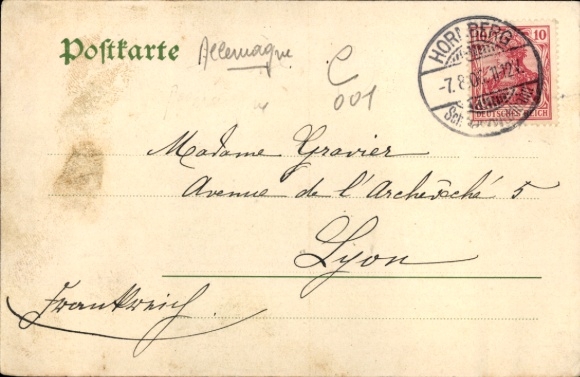 Postkarte
Allemagne
C
001
HORNBERG
-7.8.0
10
DEUTSCHES REICH
Madame Gravier
Avenue de l'Archevêché 5
Lyon
Frankreich